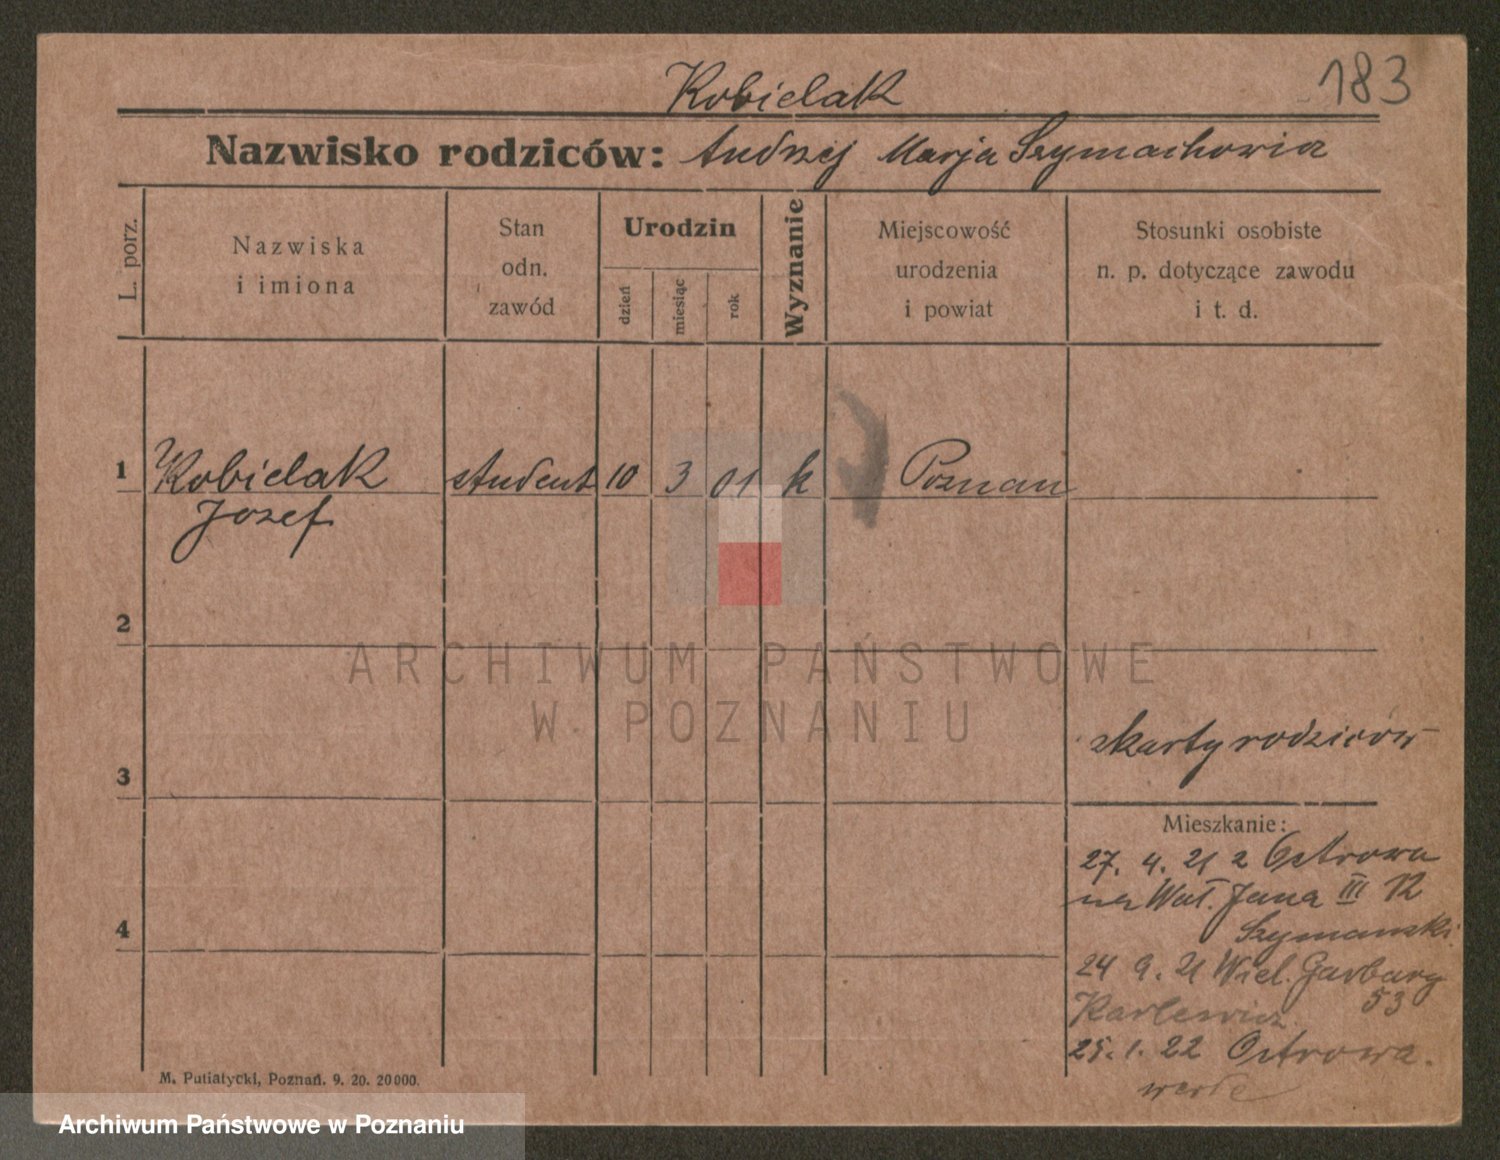 183
Kobielak
Nazwisko rodziców: Andrzej Marja Szymachowia
L. porz.
Nazwiska
i imiona
Stan
odn.
zawód
Urodzin
dzień
miesiąc
rok
Wyznanie
Miejscowość
urodzenia
i powiat
Stosunki osobiste
n. p. dotyczące zawodu
i t. d.
1 Kobielak student 10 3 01 k Poznan
Jozef
2
ARCHIWUM PAŃSTWOWE
W POZNANIU
z karty rodziców
3
Mieszkanie:
27. 4. 21 z Ostrowa
na Wał. Jana III 12
4
Szymanski
24 9. 21 Wiel. Garbary
53
Karlewicz
25. 1. 22 Ostrowa.
M. Putiatycki, Poznań. 9. 20. 20000.
Archiwum Państwowe w Poznaniu